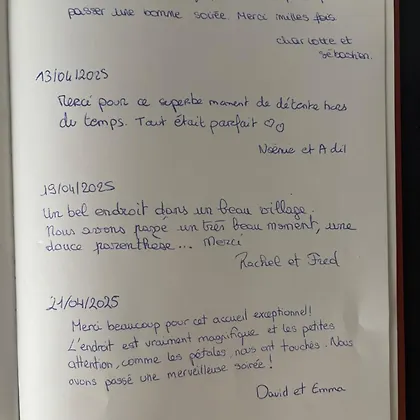 passer une bonne soirée. Merci milles fois
charlotte et
sébastien.
13/04/2025
Merci pour ce superbe moment de détente hors
du temps. Tout était parfait ♡♡
et Adil
19/04/2025
Un bel endroit dans un beau village.
Nous avons passé un très beau moment, une
douce parenthèse... Merci
Rachel et Fred
21/04/2025
Merci beaucoup pour cet accueil exceptionnel!
L'endroit est vraiment magnifique et les petites
attention, comme les pétales, nous ont touchés. Nous
avons passé une merveilleuse soirée!
David et Emma